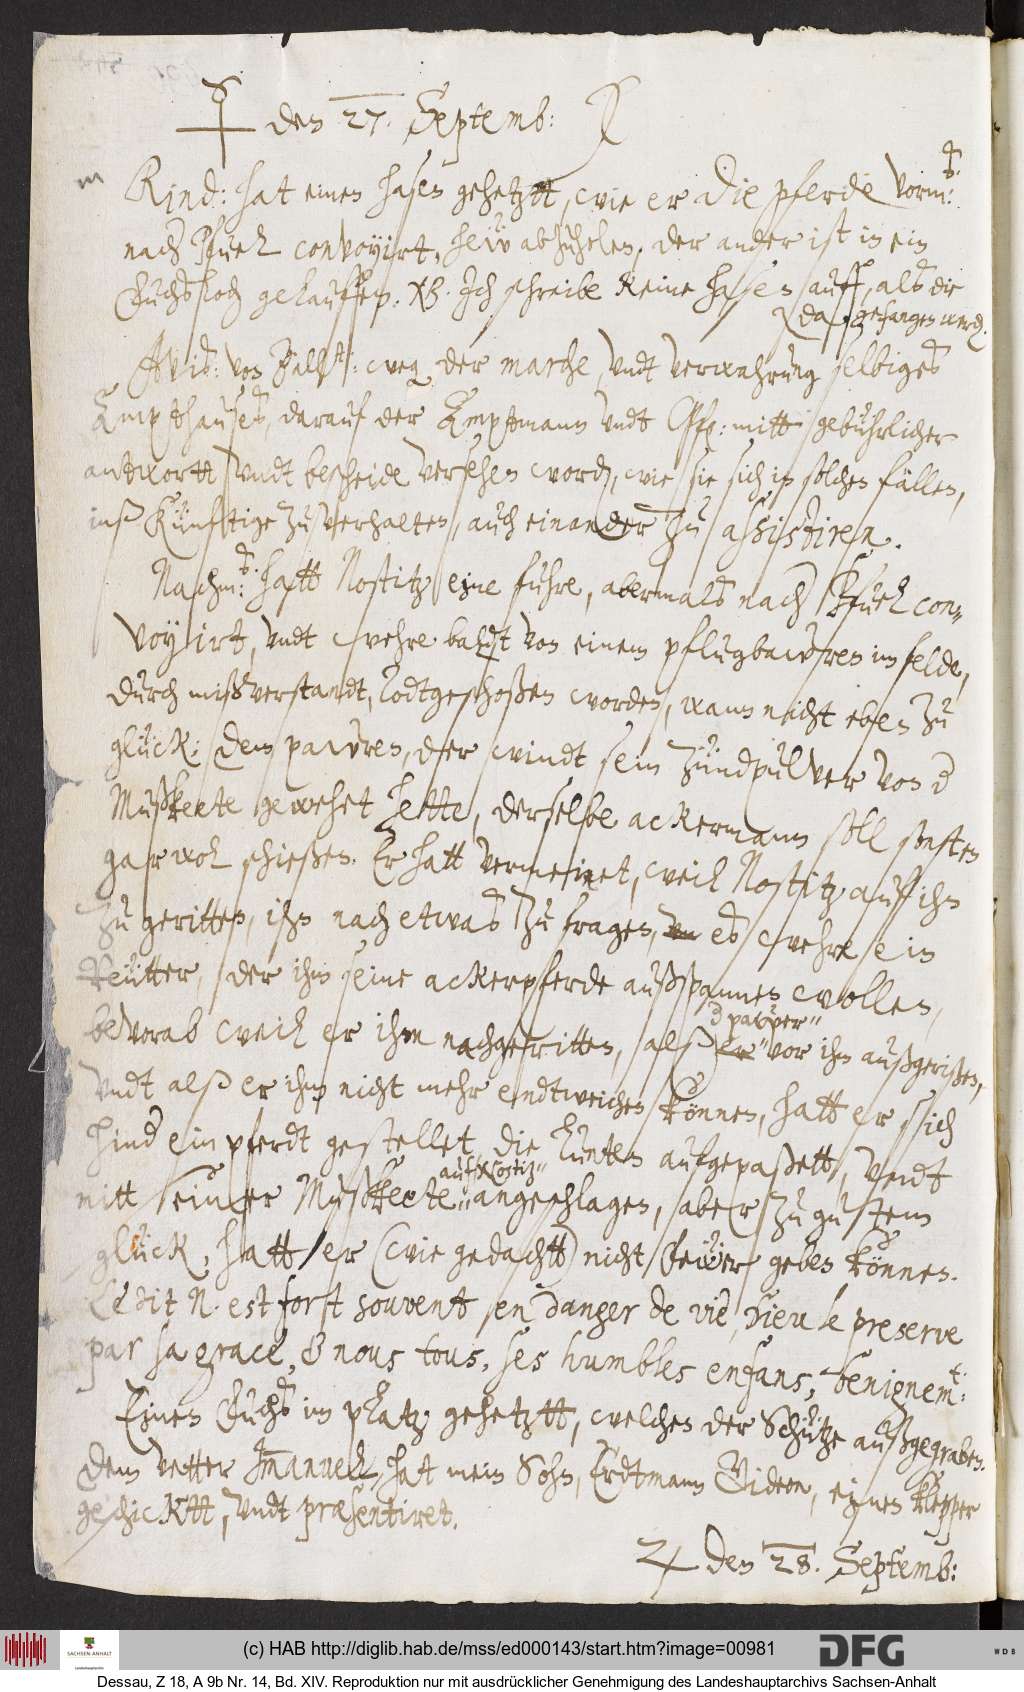 ☿ den 27. Septemb: 
m Rind: hat einen hasen gehetztt, wie er die pferde Vorm:
nach Pfuel convoyirt, heüt abzuhelen, der ander ist in ein
Fuchsloch gelauffen. NB. Ich schreibe keine hasen auff, als die
da gefangen werd.
Avis: von Ballst: weg. der marche, undt verwahrung selbiges
Ampthauses, darauf der Amptmann undt Off: mitt gebührlicher
antwortt undt bescheide versehen worden, wie sie sich in solchen fällen,
inß künftige zu verhalten, auch einander zu assistiren.
Nachm: hatt Nostitz eine fuhre, abermals nach Pfuel con-
voyirt, undt wehre baldt von einem pflugbawren im felde,
durch mißverstandt, todtgeschoßen worden, wann nicht eben zu
glück: dem pawren, der windt sein zündpulver von d
Mußkeete gewehet hette, derselbe ackermann soll sonsten
gar wol schießen. Er hatt vermeinet, weil Nostitz auf ihn
zu geritten, ihn nach etwas zu fragen, es wehre ein
Reütter, der ihm seine ackerpferde außspannen wollen,
bevorab weil er ihm nachgeritten, alß d pawer vor ihm außgerißen,
undt alß er ihm nicht mehr endtweichen können, hatt er sich
hind ein pferdt gestellet, die Lunten aufgepaßett, undt
mitt seiner Mußkeete auf Nostitz angeschlagen, aber zu gustem
glück, hatt er (wie gedachtt) nicht Feüer geben können.
Ledit N. est fort souvent en danger de vie, Dieu le preserve
par sa grace, & nous tous, ses humbles enfans, benignemt:
Einen Fuchs im platz gehetztt, welchen der Schütze außgegraben.
Dem Vetter Jmanuel, hat mein Sohn, Erdtmann Gideon, einen klepper
geschicktt, undt præsentiret.
♃ den 28. Septemb:
(c) HAB http://diglib.hab.de/mss/ed000143/start.htm?image=00981
SACHSEN-ANHALT
Landeshauptarchiv
DFG
WDB
Dessau, Z 18, A 9b Nr. 14, Bd. XIV. Reproduktion nur mit ausdrücklicher Genehmigung des Landeshauptarchivs Sachsen-Anhalt